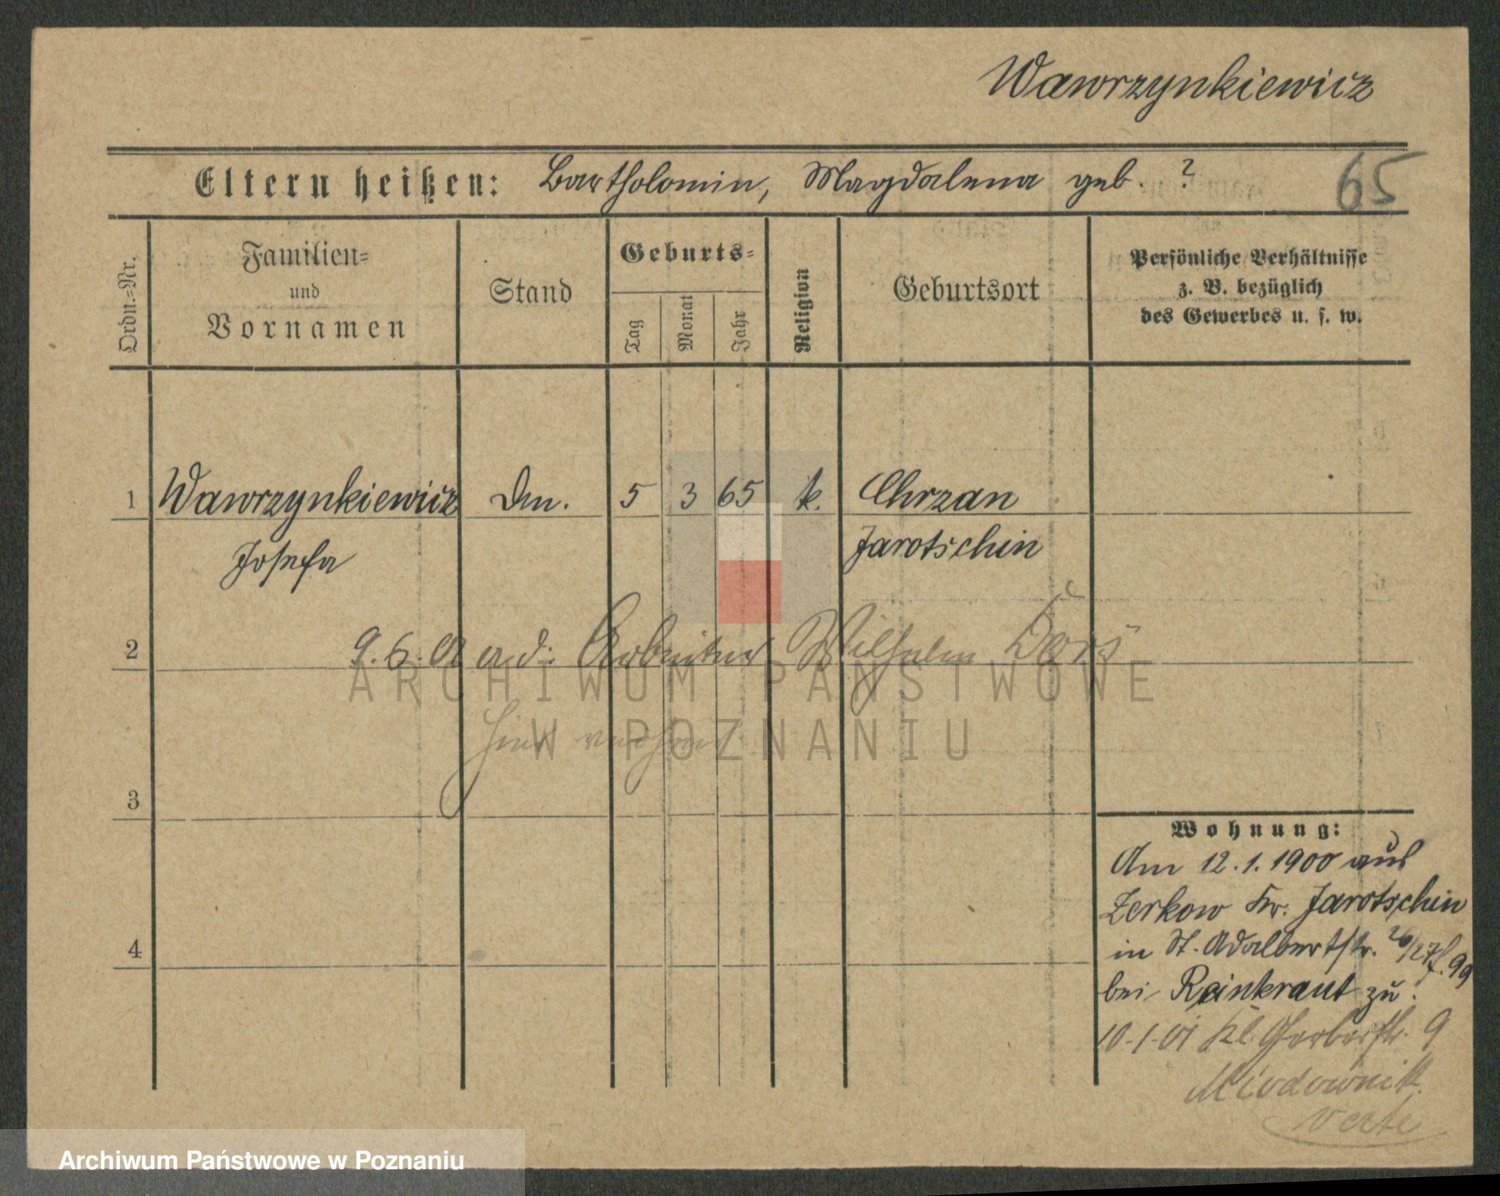 Wawrzynkiewicz
65
Eltern heißen: Bartholomin, Magdalena geb. ?
Ordn.=Nr.
Familien=
und
Vornamen
Stand
Geburts=
Tag
Monat
Jahr
Religion
Geburtsort
Persönliche Verhältnisse
z. B. bezüglich
des Gewerbes u. s. w.
1 Wawrzynkiewicz Dm. 5 3 65 k. Chrzan
Josefa Jarotschin
2 9.6. Arbeiter Wilhelm
ARCHIWUM PAŃSTWOWE
W POZNANIU
3
Wohnung:
Am 12.1.1900 aus
Zerkow Kr. Jarotschin
in St. Adalbertstr. 26/27
4
bei Reinkraut zu.
10.1.01 Kl. Gerberstr. 9
Miodownik
verte
Archiwum Państwowe w Poznaniu